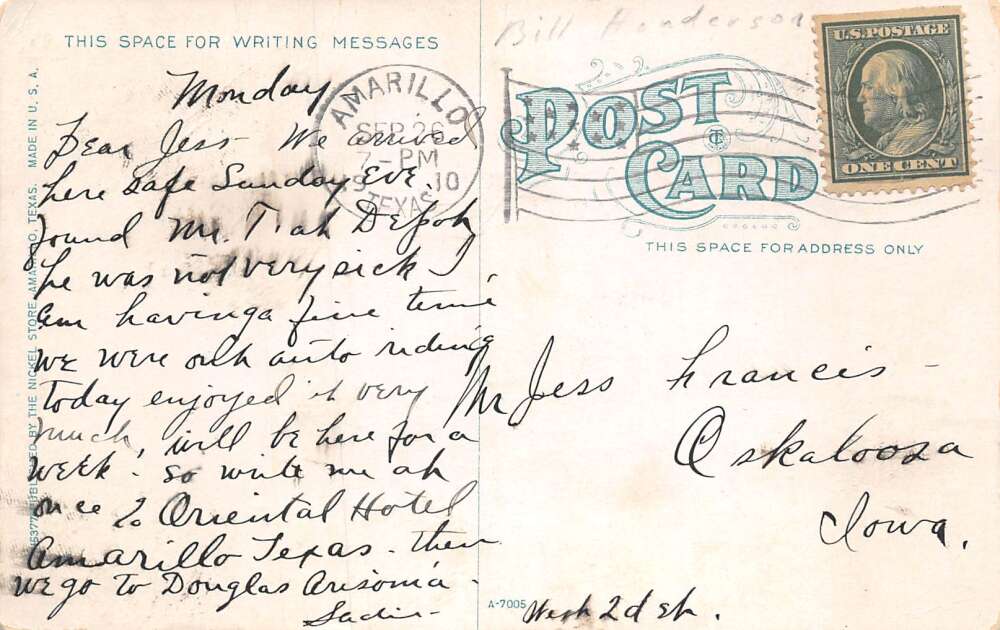 THIS SPACE FOR WRITING MESSAGES
Monday
Dear Jess - We arrived
here safe Sunday Eve.
found Mr. T at Depot
he was not very sick I
am having a fine time
we were out auto riding
today enjoyed it very
much, will be here for a
week. So write me at
once to Oriental Hotel
Amarillo Texas. then
we go to Douglas Arisonia -
Sadie -
MADE IN U.S.A.
PUBLISHED BY THE NICKEL STORE, AMARILLO, TEXAS.
AMARILLO
SEP 26
7-PM
10
TEXAS
Bill Henderson
POST CARD
U.S. POSTAGE
ONE CENT
THIS SPACE FOR ADDRESS ONLY
Mr Jess Francis -
Oskaloosa
Iowa.
A-7005
West 2d St.